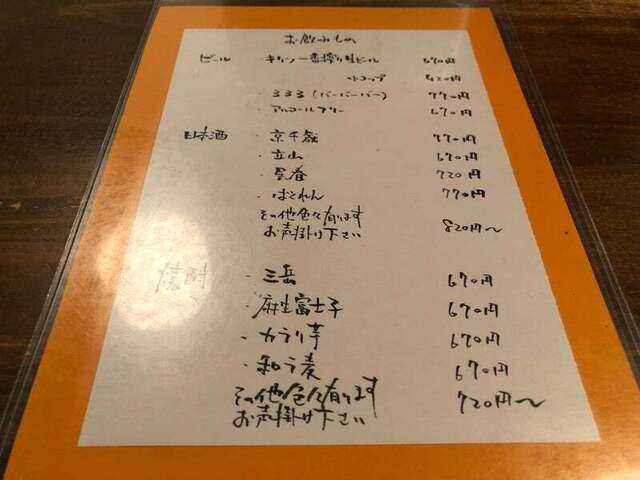 お飲みもの
ビール キリン一番搾り生ビール 670円
小コップ 420円
・333(バーバーバー) 770円
・アルコールフリー 670円
日本酒 ・京千歳 770円
・立山 670円
720円
・ばくれん 770円
その他色々有ります
お声掛け下さい 820円〜
焼酎 ・三岳 670円
・麻生富士子 670円
・カラリ芋 670円
・和ラ麦 670円
その他色々有ります 720円〜
お声掛け下さい